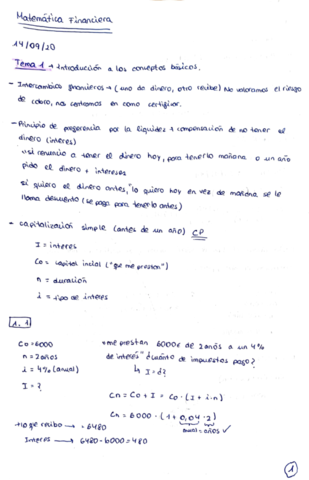 Matemática Financiera
14/09/20
Tema 1 → Introducción a los conceptos básicos.
- Intercambios financieros → (uno da dinero, otro recibe) No valoramos el riesgo
de cobro, nos centramos en como certificar.
- Principio de preferencia por la liquidez → compensación de no tener el
dinero (interes)
↳ si renuncio a tener el dinero hoy, para tenerlo mañana o un año
pido el dinero + intereses
si quiero el dinero antes, lo quiero hoy en vez de mañana se le
llama descuento (se paga para tenerlo antes)
- capitalización simple (antes de un año) CP
I = interes
Co = capital incial ("que me prestan")
n = duración
i = tipo de interes
1.1
Co = 6000
→ me prestan 6000€ de 2 anós a un 4%
n = 2 años
de interés ¿cuánto de impuestos pago?
i = 4% (anual)
↳ I = ¿?
I = ?
Cn = Co + I = Co · (1 + i·n)
Cn = 6000 · (1 + 0,04 · 2)
→ lo que recibo → = 6480
anual = años ✓
Interes → 6480 - 6000 = 480
1